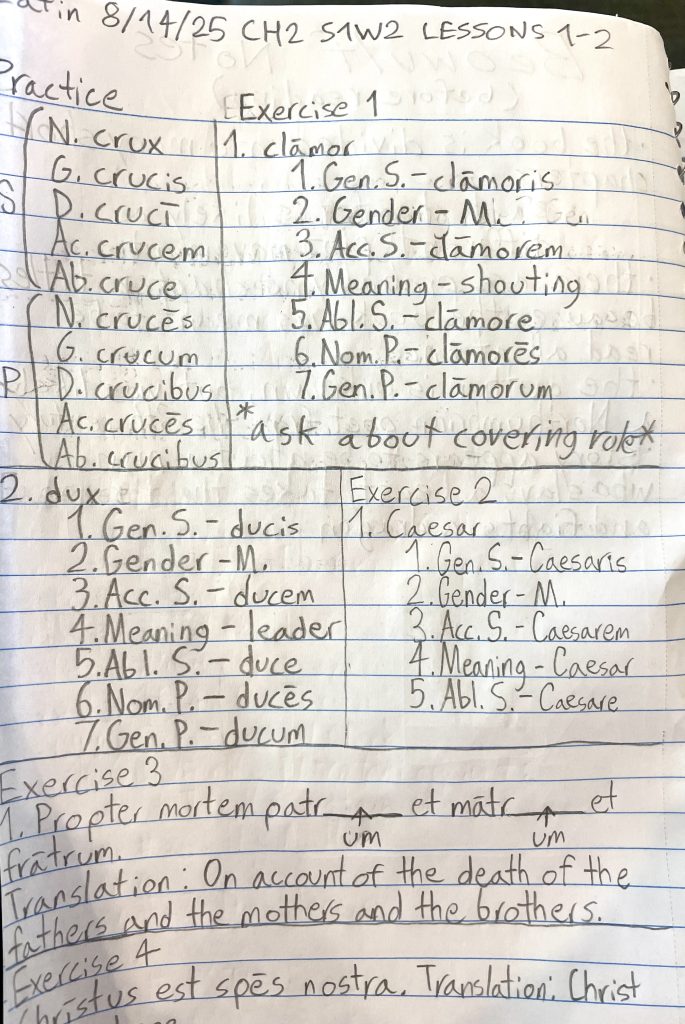 Latin 8/14/25 CH2 S1W2 LESSONS 1-2
Practice
S
N. crux
G. crucis
D. crucī
Ac. crucem
Ab. cruce
P
N. crucēs
G. crucum
D. crucibus
Ac. crucēs
Ab. crucibus
Exercise 1
1. clāmor
1. Gen. S. - clāmoris
2. Gender - M.
3. Acc. S. - clāmorem
4. Meaning - shouting
5. Abl. S. - clāmore
6. Nom. P. - clāmorēs
7. Gen. P. - clāmorum
*ask about covering rule*
2. dux
1. Gen. S. - ducis
2. Gender - M.
3. Acc. S. - ducem
4. Meaning - leader
5. Abl. S. - duce
6. Nom. P. - ducēs
7. Gen. P. - ducum
Exercise 2
1. Caesar
1. Gen. S. - Caesaris
2. Gender - M.
3. Acc. S. - Caesarem
4. Meaning - Caesar
5. Abl. S. - Caesare
Exercise 3
1. Propter mortem patr___ et mātr___ et
um um
frātrum.
Translation: On account of the death of the
fathers and the mothers and the brothers.
Exercise 4
Christus est spēs nostra. Translation: Christ